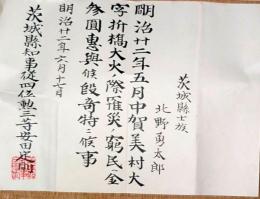 茨城縣士族
北野勇太郎
明治廿二年五月中賀美村大
字折橋大火ノ際罹災ノ窮民ヘ金
参圓惠與候段奇特ニ候事
明治廿二年六月十七日
茨城縣知事從四位勲三等安田定則